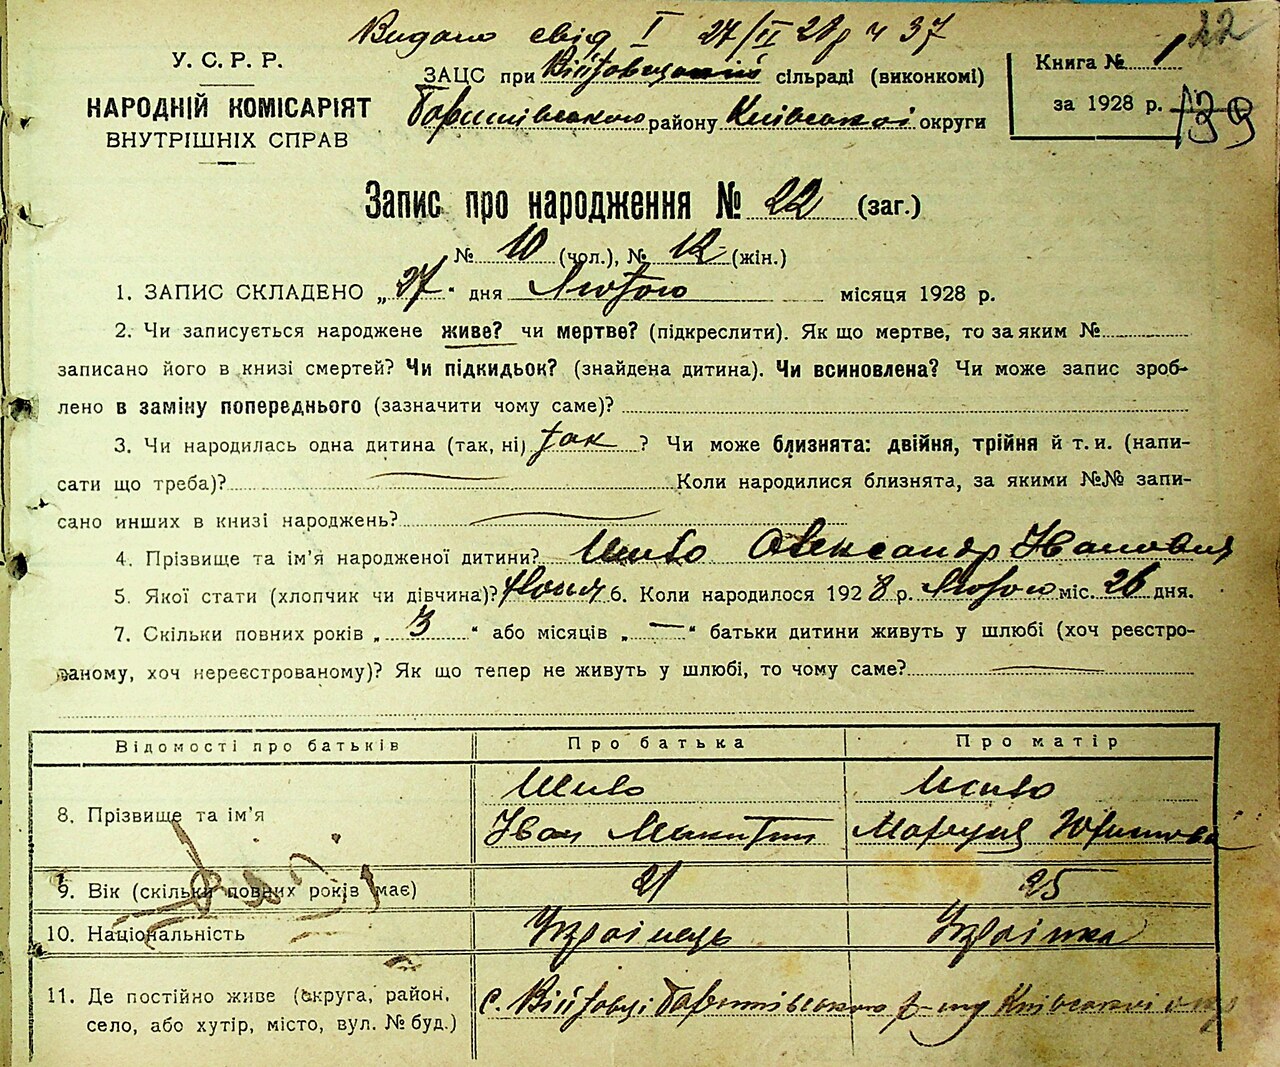 Видано свід I 27/II 28р ч 37
22
У. С. Р. Р.
НАРОДНІЙ КОМІСАРІЯТ
ВНУТРІШНІХ СПРАВ
ЗАЦС при Війтовецький сільраді (виконкомі)
Баришівського району Київської округи
Книга № 1
за 1928 р. 139
Запис про народження № 22 (заг.)
№ 10 (чол.), № 12 (жін.)
1. ЗАПИС СКЛАДЕНО „27“ дня Лютого місяця 1928 р.
2. Чи записується народжене живе? чи мертве? (підкреслити). Як що мертве, то за яким №
записано його в книзі смертей? Чи підкидьок? (знайдена дитина). Чи всиновлена? Чи може запис зроб-
лено в заміну попереднього (зазначити чому саме)?
3. Чи народилась одна дитина (так, ні) так ? Чи може близнята: двійня, трійня й т. и. (напи-
сати що треба)? Коли народилися близнята, за якими №№ запи-
сано инших в книзі народжень?
4. Прізвище та ім'я народженої дитини? Олександр Іванович
5. Якої стати (хлопчик чи дівчина)? 6. Коли народилося 1928 р. Лютого міс. 26 дня.
7. Скільки повних років „3“ або місяців „—“ батьки дитини живуть у шлюбі (хоч реєстро-
ваному, хоч нереєстрованому)? Як що тепер не живуть у шлюбі, то чому саме?
Відомості про батьків Про батька Про матір
8. Прізвище та ім'я
Іван Микитин
9. Вік (скільки повних років має) 21 25
10. Національність Українець Українка
11. Де постійно живе (округа, район, село, або хутір, місто, вул. № буд.) с. Війтовці Баришівського р-ну Київської окр